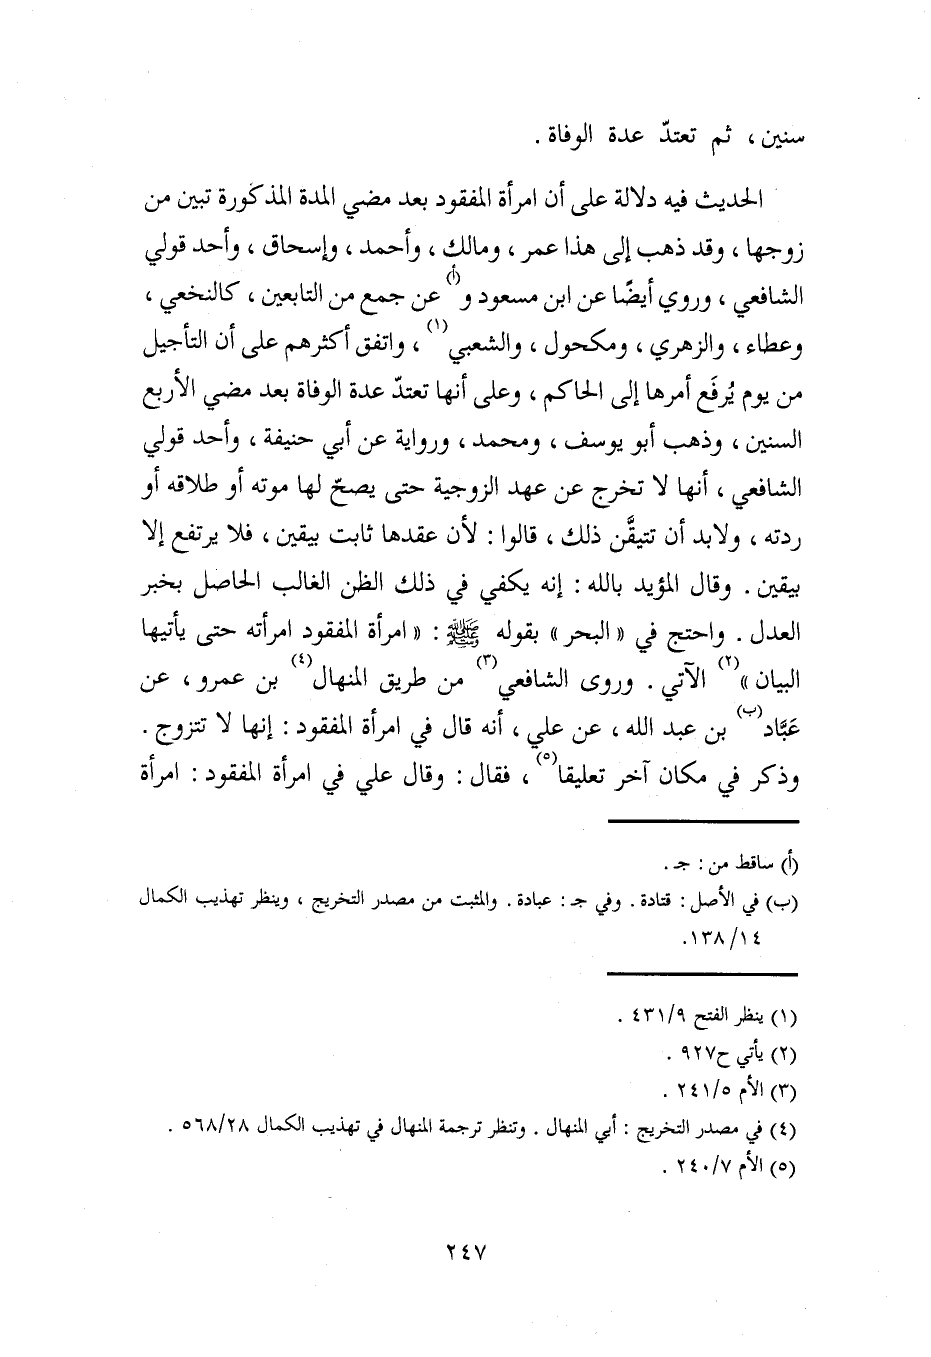 سنين ، ثم تعتدّ عدة الوفاة .
الحديث فيه دلالة على أن امرأة المفقود بعد مضي المدة المذكورة تبين من
زوجها ، وقد ذهب إلى هذا عمر ، ومالك ، وأحمد ، وإسحاق ، وأحد قولي
الشافعي ، وروي أيضًا عن ابن مسعود و(أ) عن جمع من التابعين ، كالنخعي ،
وعطاء ، والزهري ، ومكحول ، والشعبي(١) ، واتفق أكثرهم على أن التأجيل
من يوم يُرفَع أمرها إلى الحاكم ، وعلى أنها تعتدّ عدة الوفاة بعد مضي الأربع
السنين ، وذهب أبو يوسف ، ومحمد ، ورواية عن أبي حنيفة ، وأحد قولي
الشافعي ، أنها لا تخرج عن عهد الزوجية حتى يصحّ لها موته أو طلاقه أو
ردته ، ولابد أن تتيقَّن ذلك ، قالوا : لأن عقدها ثابت بيقين ، فلا يرتفع إلا
بيقين . وقال المؤيد بالله : إنه يكفي في ذلك الظن الغالب الحاصل بخبر
العدل . واحتج في « البحر » بقوله ﷺ : « امرأة المفقود امرأته حتى يأتيها
البيان »(٢) الآتي . وروى الشافعي(٣) من طريق المنهال(٤) بن عمرو ، عن
عَبَّاد(ب) بن عبد الله ، عن علي ، أنه قال في امرأة المفقود : إنها لا تتزوج .
وذكر في مكان آخر تعليقا(٥) ، فقال : وقال علي في امرأة المفقود : امرأة
(أ) ساقط من : جـ .
(ب) في الأصل : قتادة . وفي جـ : عبادة . والمثبت من مصدر التخريج ، وينظر تهذيب الكمال
١٤/ ١٣٨.
(١) ينظر الفتح ٩/ ٤٣١ .
(٢) يأتي ح٩٢٧ .
(٣) الأم ٥/ ٢٤١ .
(٤) في مصدر التخريج : أبي المنهال . وتنظر ترجمة المنهال في تهذيب الكمال ٢٨/ ٥٦٨ .
(٥) الأم ٧/ ٢٤٠ .
٢٤٧